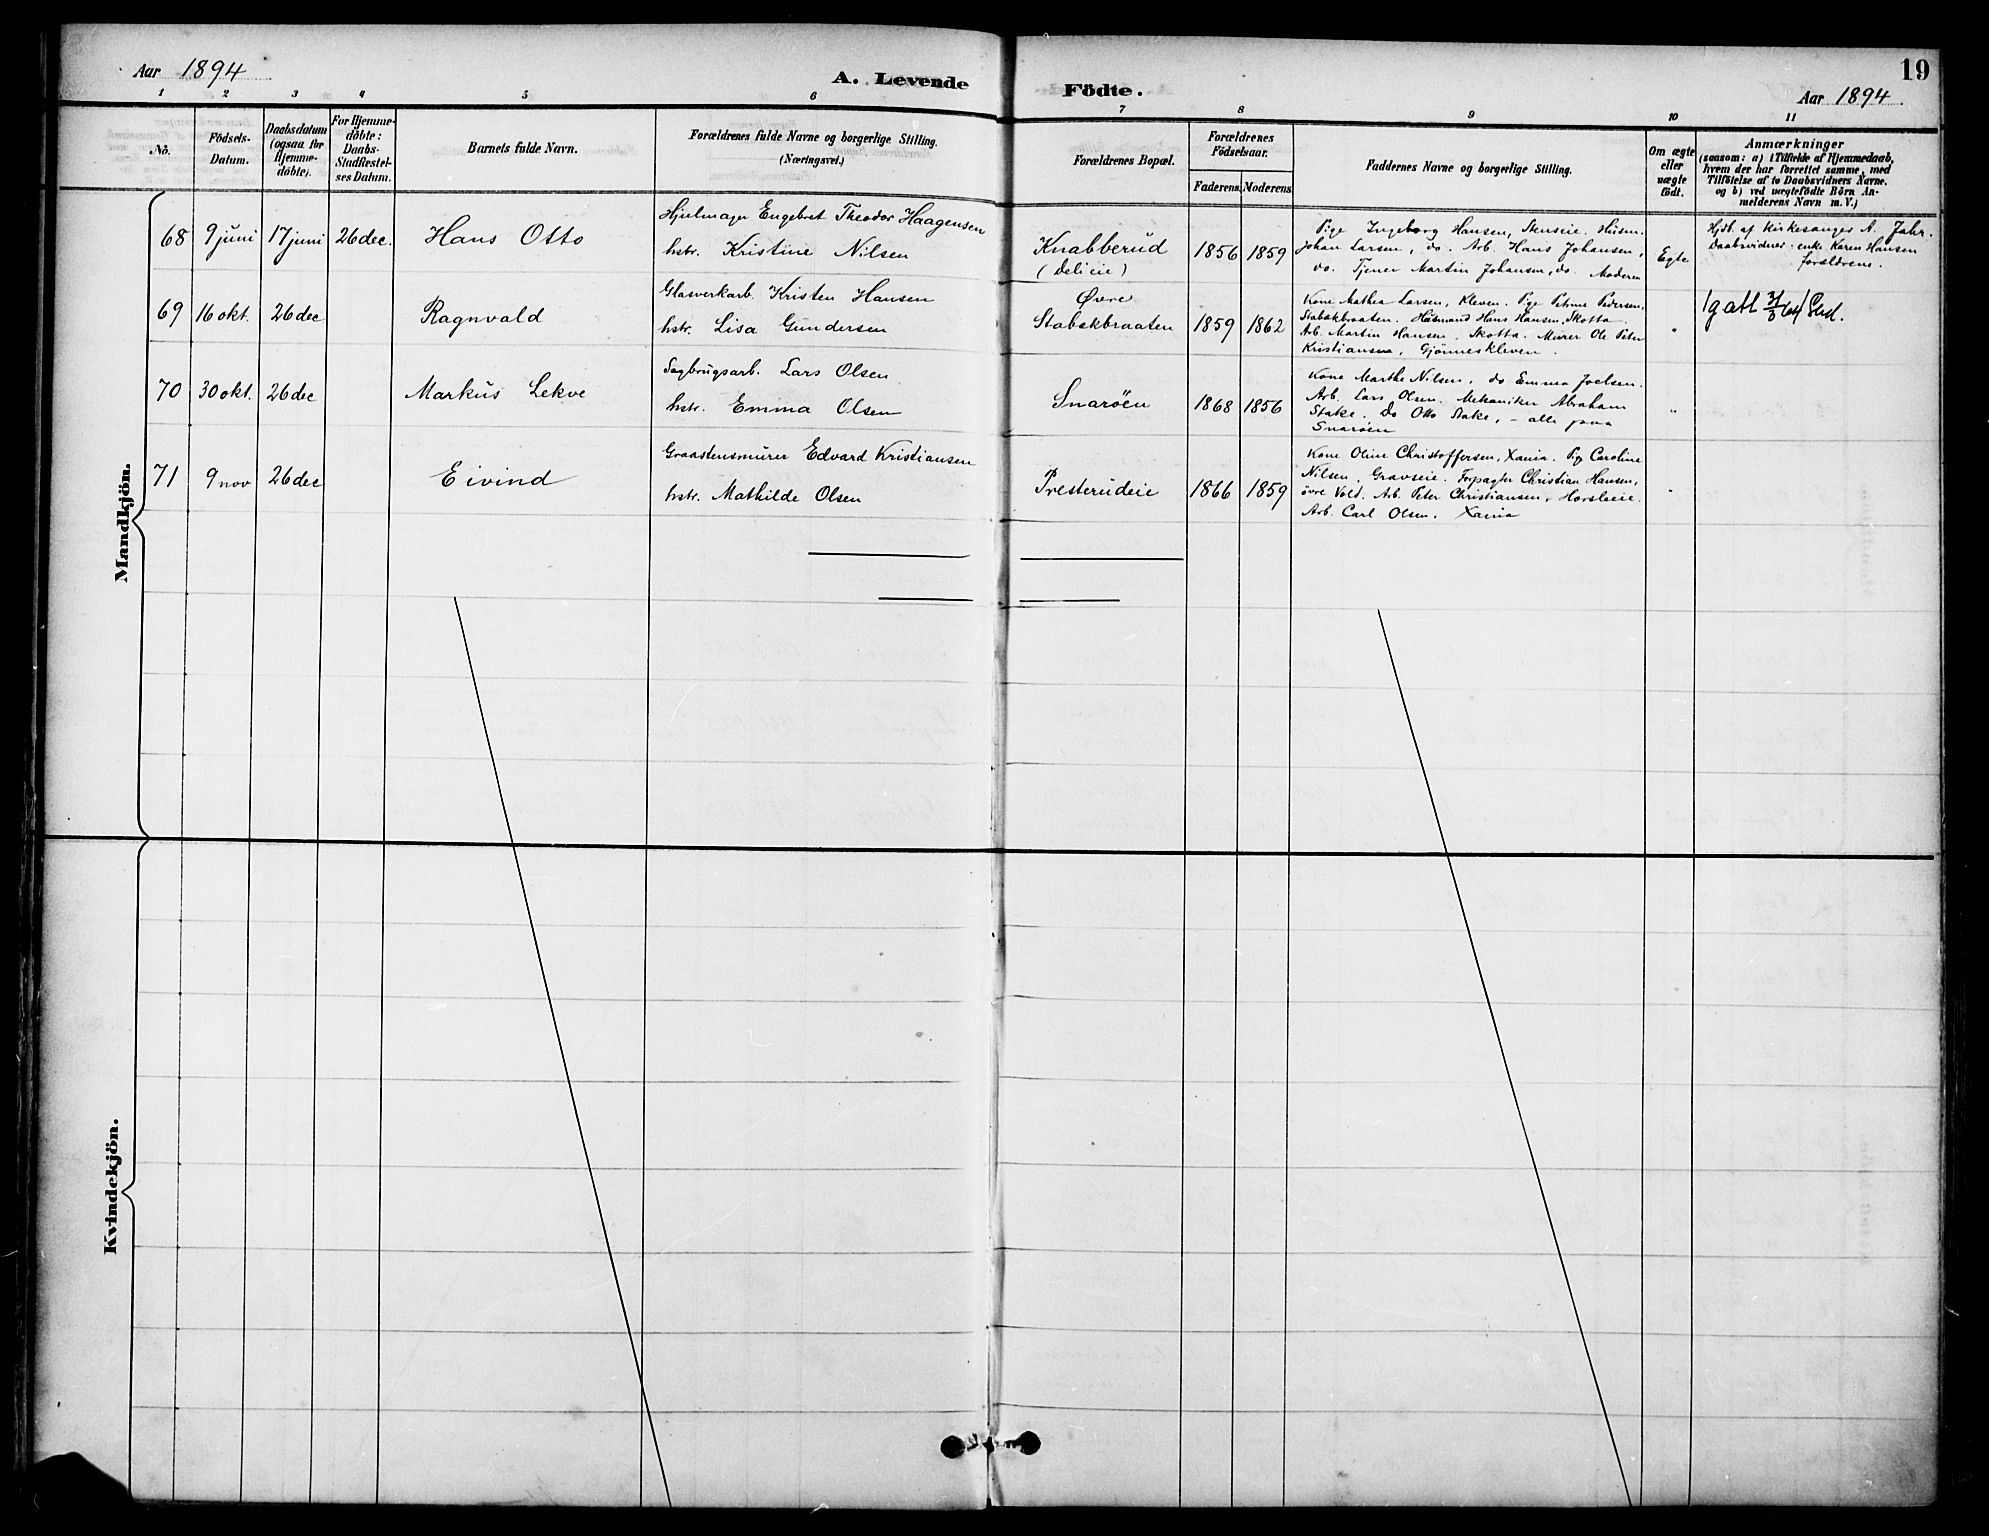 Aar 1894
A. Levende
Födte.
19
Aar 1894
1 2 3 4 5 6 7 8 9 10 11
No.
Födsels-
Datum.
Daabsdatum
(ogsaa for
Hjemme-
döbte).
For Hjemme-
döbte:
Daabs-
Stadfæstel-
ses Datum.
Barnets fulde Navn.
Forældrenes fulde Navne og borgerlige Stilling.
(Næringsvei.)
Forældrenes Bopæl.
Forældrenes
Födselsaar.
Faderens. Moderens
Faddernes Navne og borgerlige Stilling.
Om ægte
eller
uægte
födt.
Anmærkninger
(saasom: a) i Tilfælde af Hjemmedaab,
hvem der har forrettet samme, med
Tilföielse af to Daabsvidners Navne.
og b) ved uægtefödte Börn An-
melderens Navn m. V.)
Mandkjön.
68 9 juni 17 juni 26 dec. Hans Otto
Hjulmager Engebret Theodor Haagensen
hstr. Kristine Nilsen
Knabberud
(Delieie)
1856 1859
Pige Ingeborg Hansen, Stenseie. Husm.
Johan Larsen, do. Arb. Hans Johansen,
do. Tjener Martin Johansen, do. Moderen
Egte
Hjdt. af Kirkesanger A. Jahr.
Daabsvidner: enke Karen Hansen
forældrene.
69 16 okt. 26 dec Ragnvald
Glasverkarb. Kristen Hansen
hstr. Lisa Gundersen
Övre
Stabækbraaten
1859 1862
Kone Mathea Larsen, Kleven. Pige Petrine Pedersen,
Stabækbraaten. Husmand Hans Hansen, Skotta
Arb. Martin Hansen, Skotta. Murer Ole Peter
Kristiansen, Gjönneskleven.
"
70 30 okt. 26 dec Markus Lekve
Sagbrugsarb. Lars Olsen
hstr. Emma Olsen
Snaröen
1868 1856
Kone Marthe Nilsen, do Emma Joelsen.
Arb. Lars Olsen. Mekaniker Abraham
Stake. Do Otto Stake, - alle paa
Snaröen
"
71 9 nov 26 dec Eivind
Graastensmurer Edvard Kristiansen
hstr. Mathilde Olsen
Presterudeie
1866 1859
Kone Oline Christoffersen, Xania. Pige Caroline
Nilsen, Gravseie. Forpagter Christian Hansen,
övre Vold. Arb. Peter Christiansen, Horsleeie.
Arb. Carl Olsen. Xania
"
Kvindekjön.